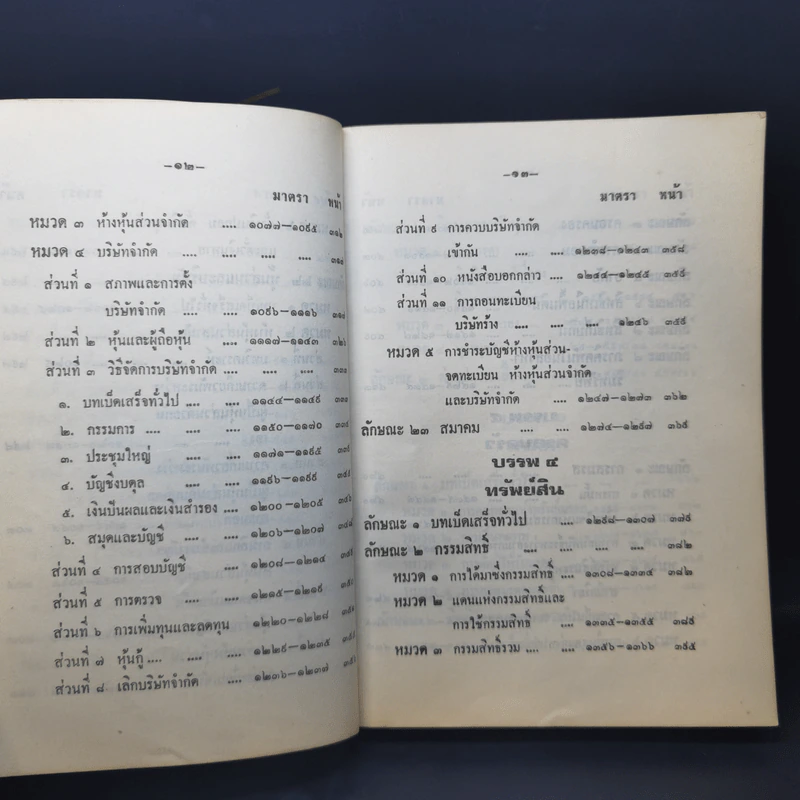 –๑๒–
มาตรา หน้า
หมวด ๓ ห้างหุ้นส่วนจำกัด .... ๑๐๗๗–๑๐๙๕ ๓๑๒
หมวด ๔ บริษัทจำกัด .... .... .... .... ๓๑๗
ส่วนที่ ๑ สภาพและการตั้ง
บริษัทจำกัด .... ๑๐๙๖–๑๑๑๖ ๓๑๗
ส่วนที่ ๒ หุ้นและผู้ถือหุ้น .... ๑๑๑๗–๑๑๔๓
ส่วนที่ ๓ วิธีจัดการบริษัทจำกัด .... .... ....
๑. บทเบ็ดเสร็จทั่วไป .... ๑๑๔๔–๑๑๔๙
๒. กรรมการ .... .... ๑๑๕๐–๑๑๗๐
๓. ประชุมใหญ่ .... ๑๑๗๑–๑๑๙๕
๔. บัญชีงบดุล .... ๑๑๙๖–๑๑๙๙
๕. เงินปันผลและเงินสำรอง .... ๑๒๐๐–๑๒๐๕
๖. สมุดและบัญชี .... ๑๒๐๖–๑๒๐๗
ส่วนที่ ๔ การสอบบัญชี .... ๑๒๐๘–๑๒๑๔
ส่วนที่ ๕ การตรวจ .... .... ๑๒๑๕–๑๒๑๙
ส่วนที่ ๖ การเพิ่มทุนและลดทุน ๑๒๒๐–๑๒๒๘
ส่วนที่ ๗ หุ้นกู้ .... .... .... ๑๒๒๙–๑๒๓๕
ส่วนที่ ๘ เลิกบริษัทจำกัด .... ๑๒๓๖–๑๒๓๗
–๑๓–
มาตรา หน้า
ส่วนที่ ๙ การควบบริษัทจำกัด
เข้ากัน .... .... ๑๒๓๘–๑๒๔๓ ๓๕๘
ส่วนที่ ๑๐ หนังสือบอกกล่าว .... ๑๒๔๔–๑๒๔๕ ๓๕๙
ส่วนที่ ๑๑ การถอนทะเบียน
บริษัทร้าง .... .... .... ๑๒๔๖ ๓๕๙
หมวด ๕ การชำระบัญชีห้างหุ้นส่วน-
จดทะเบียน ห้างหุ้นส่วนจำกัด
และบริษัทจำกัด .... ๑๒๔๗–๑๒๗๓ ๓๖๒
ลักษณะ ๒๓ สมาคม .... .... ๑๒๗๔–๑๒๙๗ ๓๖๙
บรรพ ๔
ทรัพย์สิน
ลักษณะ ๑ บทเบ็ดเสร็จทั่วไป .... ๑๒๙๘–๑๓๐๗ ๓๗๙
ลักษณะ ๒ กรรมสิทธิ์ .... .... .... .... ๓๘๒
หมวด ๑ การได้มาซึ่งกรรมสิทธิ์ .... ๑๓๐๘–๑๓๓๔ ๓๘๒
หมวด ๒ แดนแห่งกรรมสิทธิ์และ
การใช้กรรมสิทธิ์ .... ๑๓๓๕–๑๓๕๕ ๓๘๙
หมวด ๓ กรรมสิทธิ์รวม .... .... ๑๓๕๖–๑๓๖๖ ๓๙๕